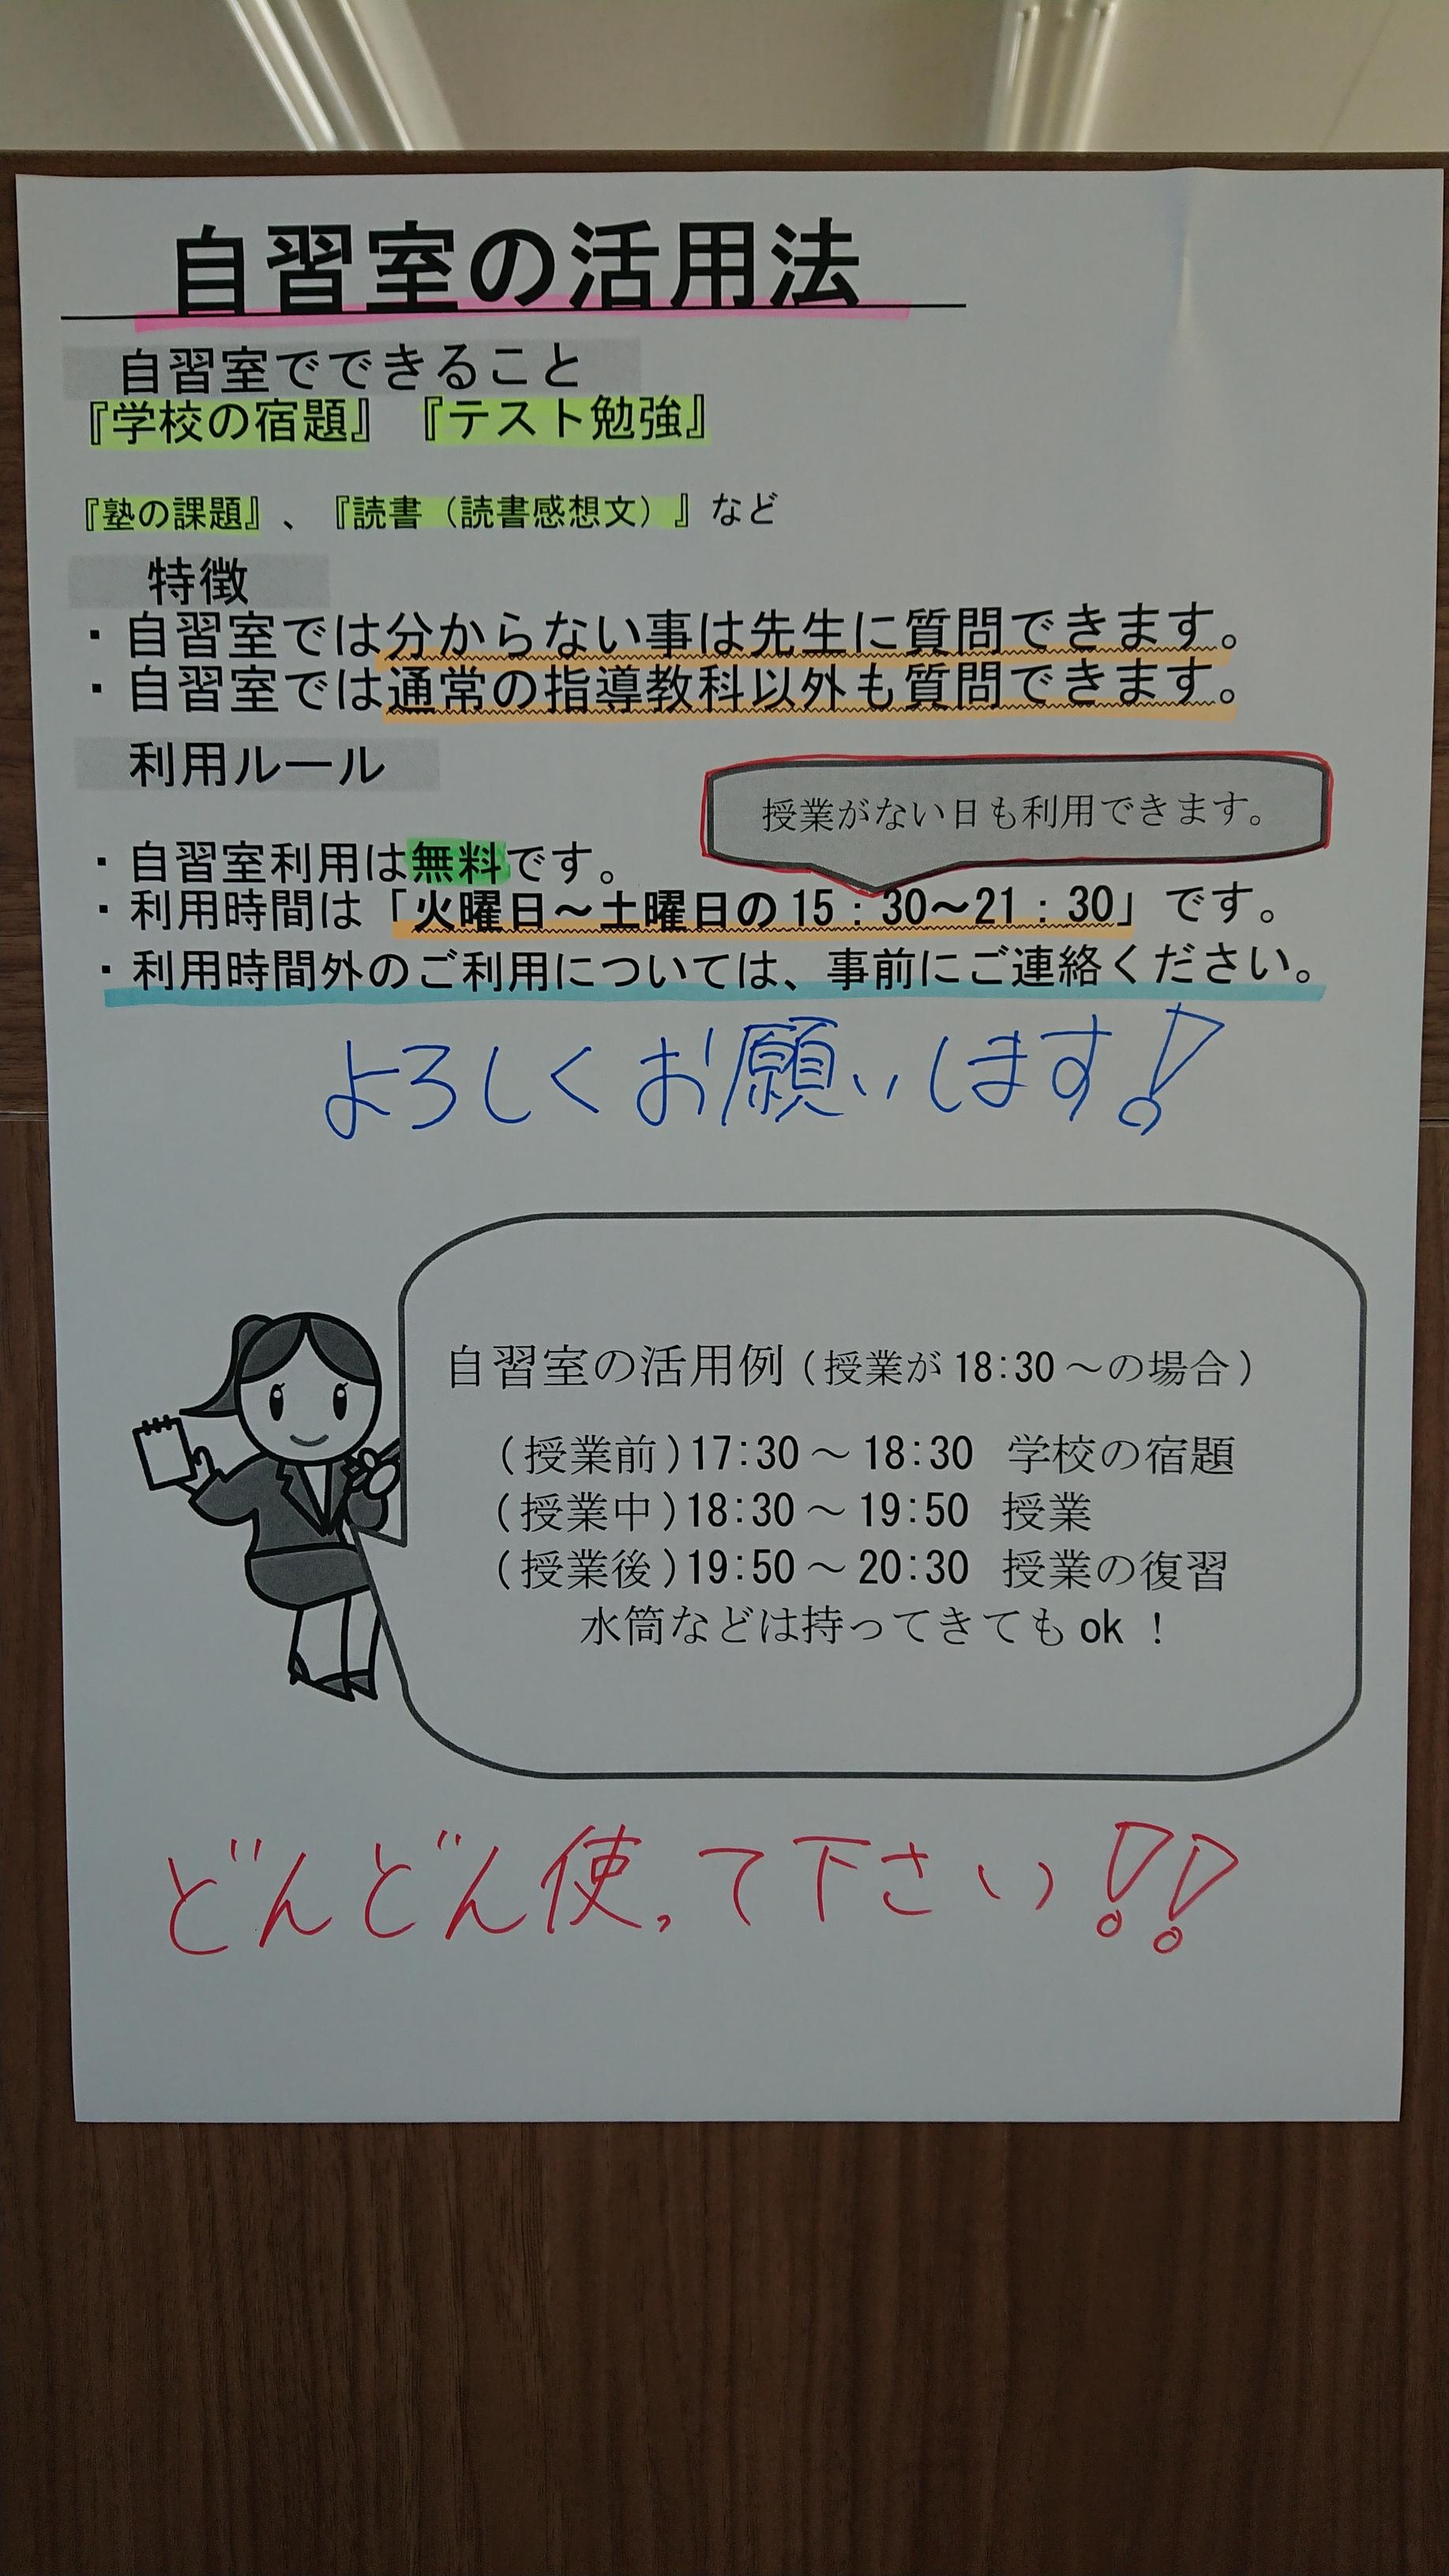 自習室の活用法
自習室でできること
『学校の宿題』 『テスト勉強』
『塾の課題』、『読書（読書感想文）』など
特徴
・自習室では分からない事は先生に質問できます。
・自習室では通常の指導教科以外も質問できます。
利用ルール
授業がない日も利用できます。
・自習室利用は無料です。
・利用時間は「火曜日～土曜日の15：30～21：30」です。
・利用時間外のご利用については、事前にご連絡ください。
よろしくお願いします!
自習室の活用例(授業が18:30～の場合)
(授業前)17:30～18:30 学校の宿題
(授業中)18:30～19:50 授業
(授業後)19:50～20:30 授業の復習
水筒などは持ってきてもok！
どんどん使って下さい!!